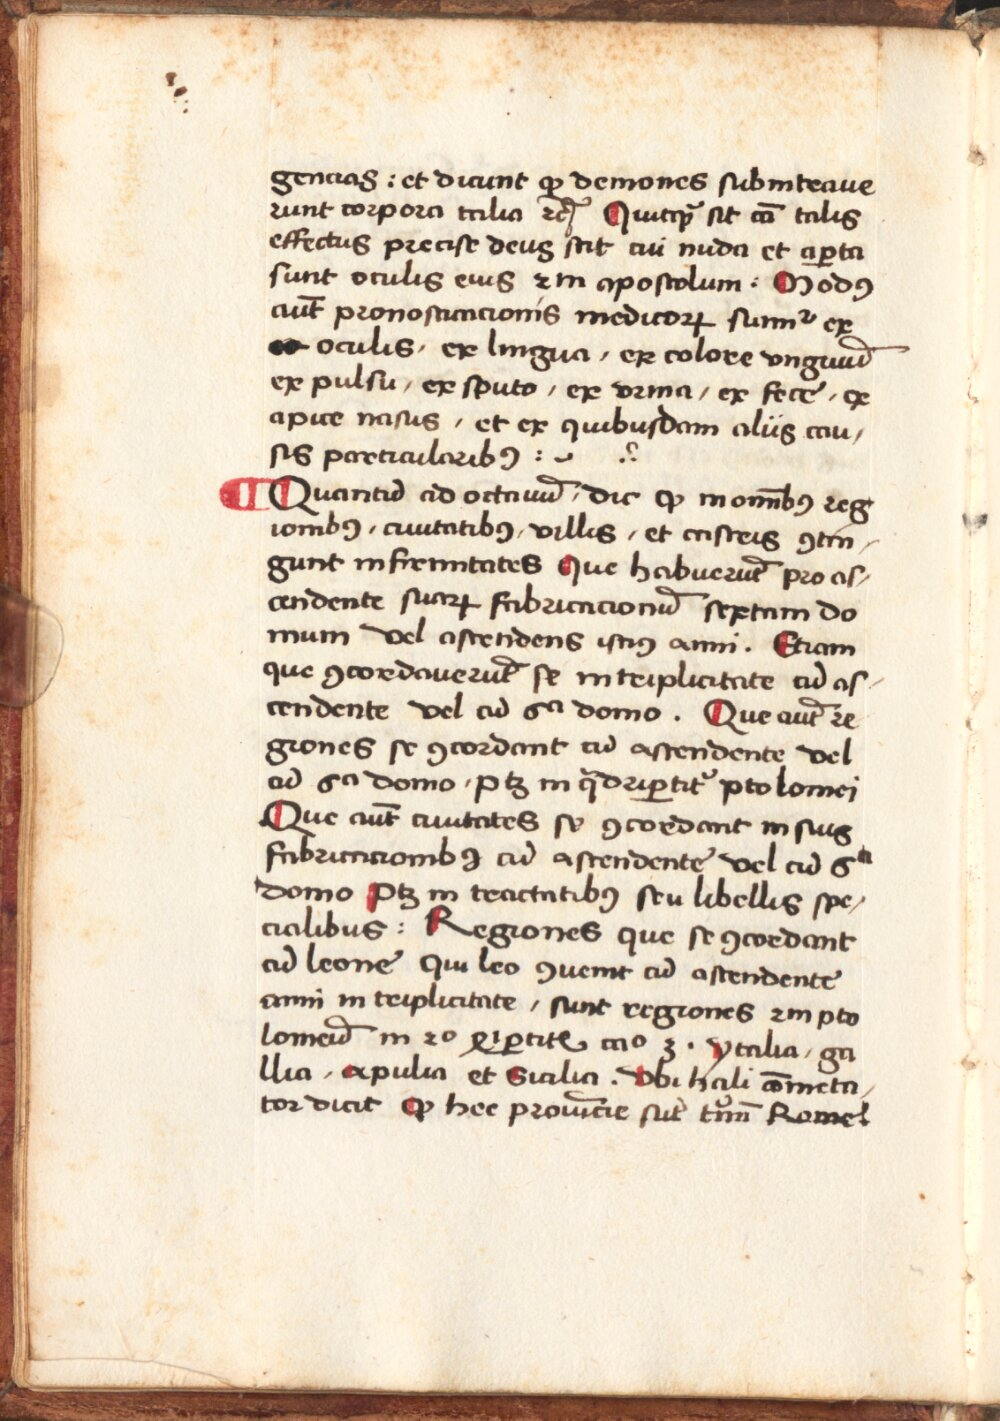 gencias : et dicunt ꝙ demones subintraue
runt corpora talia ⁊cꝫ Quitqͥd sit cā talis
effectus precise deus scit cui nuda et aꝑta
sunt oculis eius ẜm apostolum : Modꝰ
aūt pronosticacionis medicoꝝ sumiͭ ex
oculis / ex lingua / ex colore vnguiū
ex pulsu / ex sputo / ex vrina / ex fece / ex
apice nasus / et ex quibusdam aliis cau /
sis particularibꝰ : ~ ∴
¶ Quantū ad octauū / dic ꝙ in omībꝰ reg
ionibꝰ / ciuitatibꝰ / villis / et castris ꝯtin /
gunt infirmitates Que habuerūt pro as /
cendente suaꝝ fabricacionū sextam do
mum vel ascendens istiꝰ anni . Etiam
que ꝯcordauerūt se in triplicitate cū as /
cendente vel cū 6ᵃ domo . Que aūt re
giones se ꝯcordant cū ascendente vel
cū 6ᵃ domo / ptꝫ in q̄driꝑtitͦ ptolomei
Que aūt ciuitates se ꝯcordant in suis
fabricacionibꝰ cū ascendente vel cū 6ᵃ
domo Ptꝫ in tractatibꝰ seu libellis spe /
cialibus : Regiones que se ꝯcordant
cū leone Qui leo ꝯuenit cū ascendente
anni in triplicitate / sunt regiones ẜm pto
lomeū in 2º q̈ꝑtiti caº 3 . ytalia / ga
llia / apulia et Sicilia . Vbi hali cōmeta /
tor dicit ꝙ hee prouīcie sūt tm̄